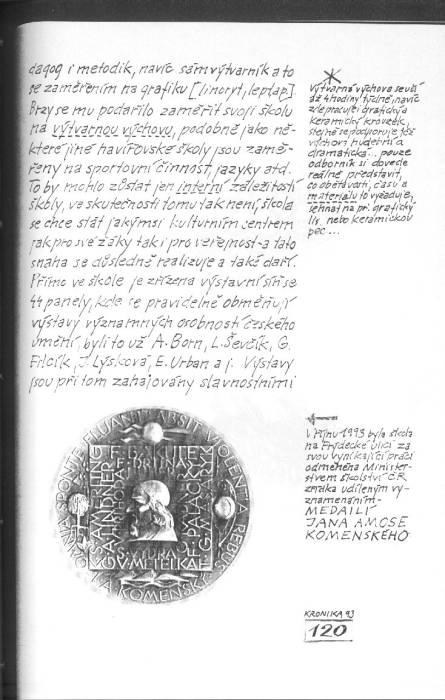 dagog i metodik, navíc sám výtvarník a to
se zaměřením na grafiku [linoryt, lept ap].
Brzy se mu podařilo zaměřit svoji školu
na výtvarnou výchovu, podobně jako ně-
které jiné havířovské školy jsou zamě-
řeny na sportovní činnost, jazyky atd.
To by mohlo zůstat jen interní záležitostí
školy, ve skutečnosti tomu tak není, škola
se chce stát jakýmsi kulturním centrem
jak pro své žáky tak i pro veřejnost - a tato
snaha se důsledně realizuje a také daří.
Přímo ve škole je zřízena výstavní síň se
44 panely, kde se pravidelně obměňují
výstavy význanmných osobností českého
umění, byli to už A. Born, L. Ševčík, G.
Filcík, J. Lýsková, E. Urban a j. Výstavy
jsou při tom zahajovány slavnostními
Výtvarná výchova se učí
až 4 hodiny týdně, navíc
zde pracuje i grafický a
keramický kroužek,
stejně se podporuje též
výchova hudební a
dramatická... pouze
odborník si dovede
reálně představit,
co obětavosti, času a
materiálu to vyžaduje,
sehnat na př. grafický
lis, nebo keramickou
pec ...
V říjnu 1993 byla škola
na Frýdecké ulici za
svou vynikající práci
odměněna Minister-
stvem školství ČR
udíleným vy-
znamenáním -
MEDAILÍ
JANA AMOSE
KOMENSKÉHO
OMNIA SPONTE FLUANT ABSIT VIOLENTIA REBUS
J. A. KOMENSKÝ
KRONIKA 93
120